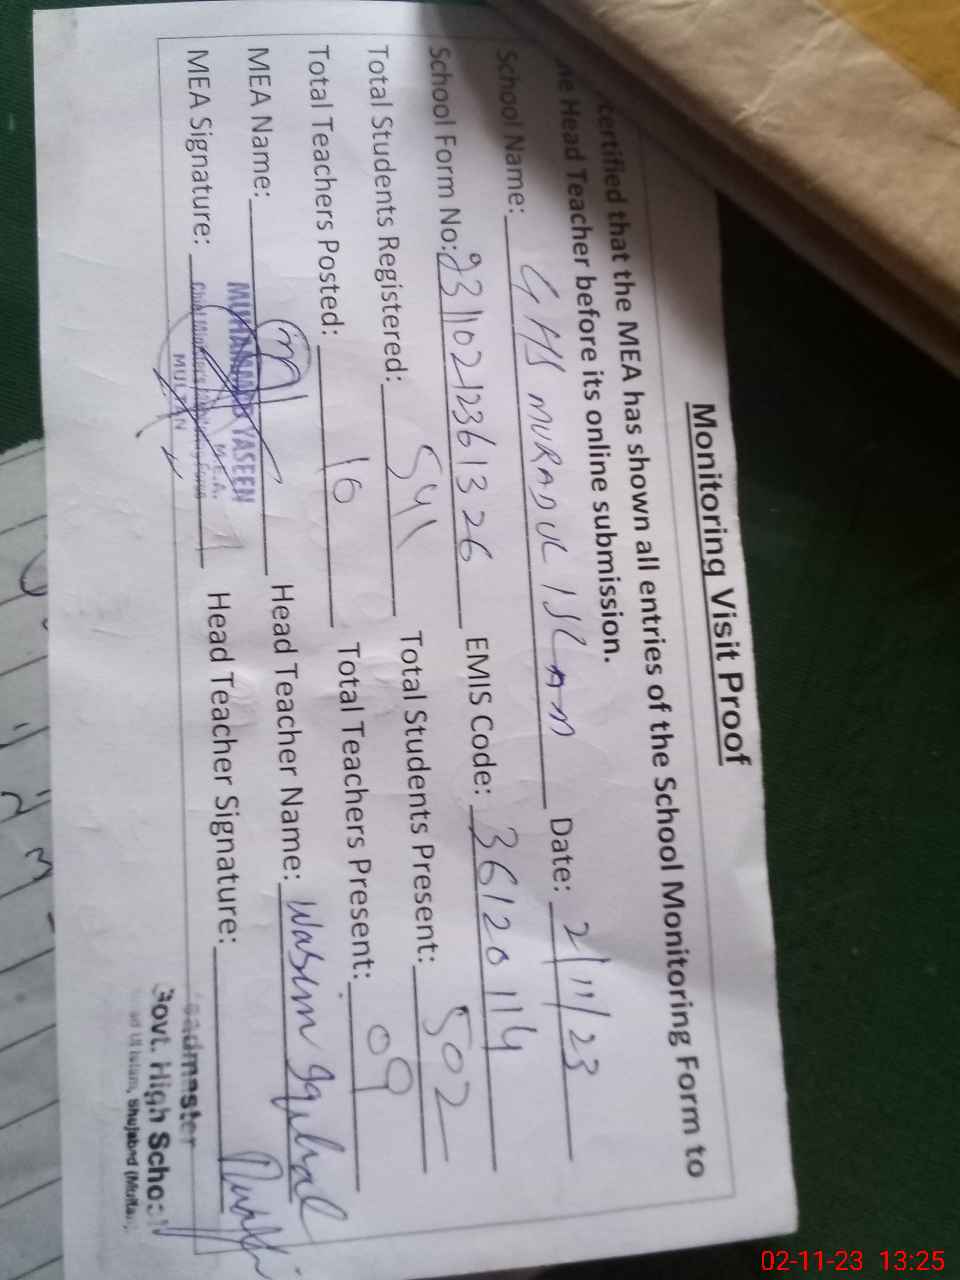 Monitoring Visit Proof
certified that the MEA has shown all entries of the School Monitoring Form to
Head Teacher before its online submission.
School Name: GHS MURADUL ISLAM Date: 2/11/23
School Form No: EMIS Code: 36120114
Total Students Registered: 541 Total Students Present: 502
Total Teachers Posted: 10 Total Teachers Present: 09
MEA Name: Head Teacher Name: Wasim Iqubal
MEA Signature: Head Teacher Signature:
MUHAMMAD YASEEN
M.E.A.
Chief Minister's Monitoring Force
MULTAN
eadmaster
Govt. High School
ad Ul Islam, Shujabad (Multan)
02-11-23 13:25